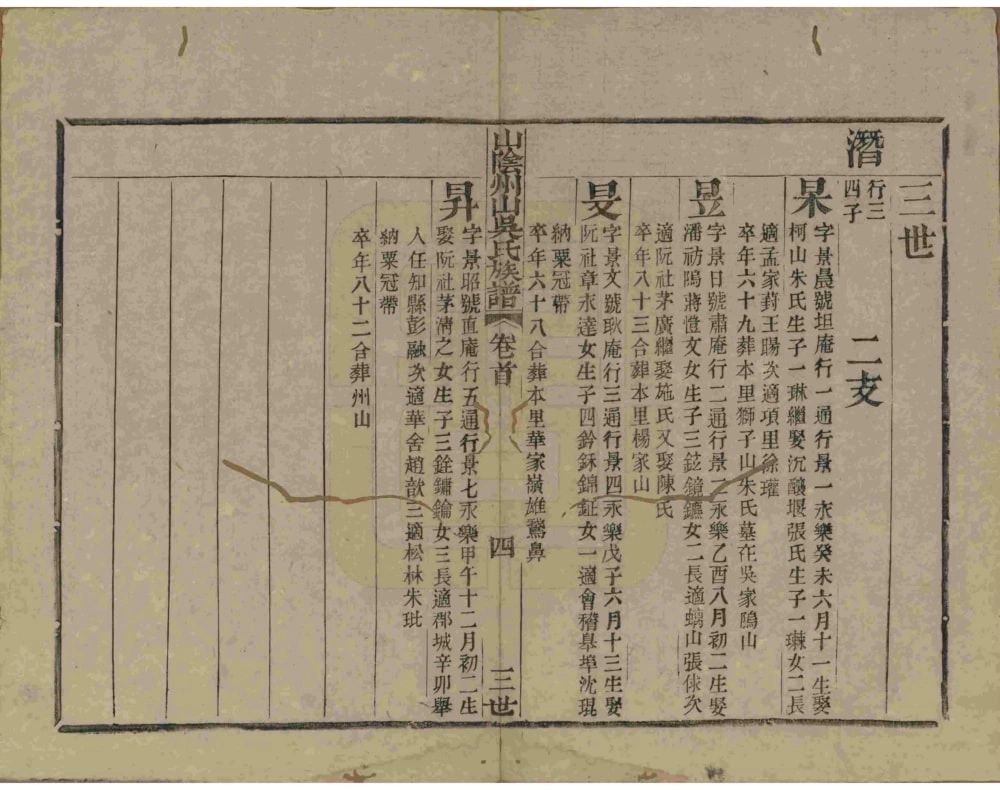 三世 二支
潛 行三 四子
杲 字景晨號坦庵行一通行景一永樂癸未六月十一生娶
柯山朱氏生子一琳繼娶沉釀堰張氏生子一璇女二長
適孟家葑王暘次適項里徐瓘
卒年六十九葬本里獅子山朱氏墓在吳家隝山
昱 字景日號肅庵行二通行景二永樂乙酉八月初二生娶
潘祊隝蔣愷文女生子三鉉鐩鑣女二長適螭山張俅次
適阮社茅廣繼娶施氏又娶陳氏
卒年八十三合葬本里楊家山
旻 字景文號耿庵行三通行景四永樂戊子六月十三生娶
阮社章永達女生子四鈐鉌錦鉦女一適會稽皋埠沈琨
納粟冠帶
卒年六十八合葬本里華家嶺雄鵞鼻
山陰州山吳氏族譜 卷首 四 三世
昇 字景昭號直庵行五通行景七永樂甲午十二月初二生
娶阮社茅淸之女生子三銓鏞鑰女三長適郡城辛卯舉
人任知縣彭融次適華舍趙歆三適松林朱玭
納粟冠帶
卒年八十二合葬州山